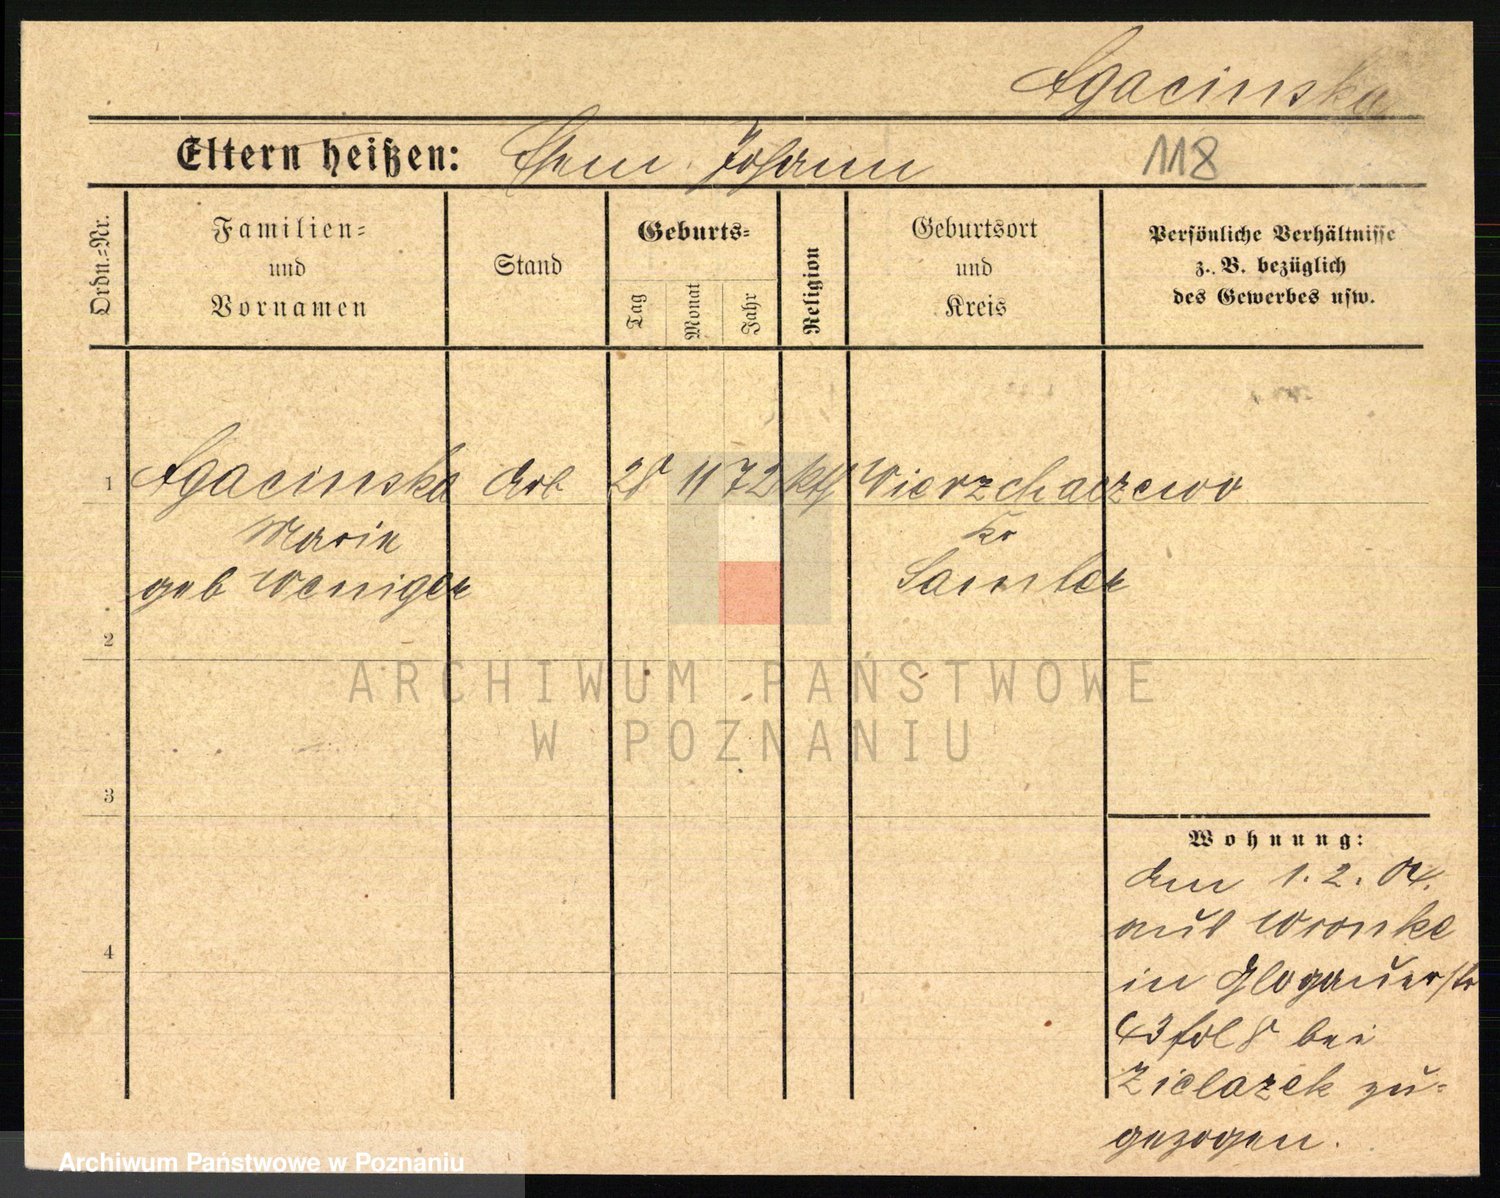 Agacinska
Eltern heißen: Ehem. Johann
118
Ordn.-Nr.
Familien-
und
Vornamen
Stand
Geburts-
Tag
Monat
Jahr
Religion
Geburtsort
und
Kreis
Persönliche Verhältnisse
z. B. bezüglich
des Gewerbes usw.
1 Agacinska Arb 28 11 72 kth Wierzchaczewo
Marie Kr
geb Weniger Samter
2
3
4
Wohnung:
Am 1. 2. 04.
aus Wronke
in Glogauerstr
43 fol 8 bei
Zielazek zu-
gezogen.
ARCHIWUM PAŃSTWOWE
W POZNANIU
Archiwum Państwowe w Poznaniu